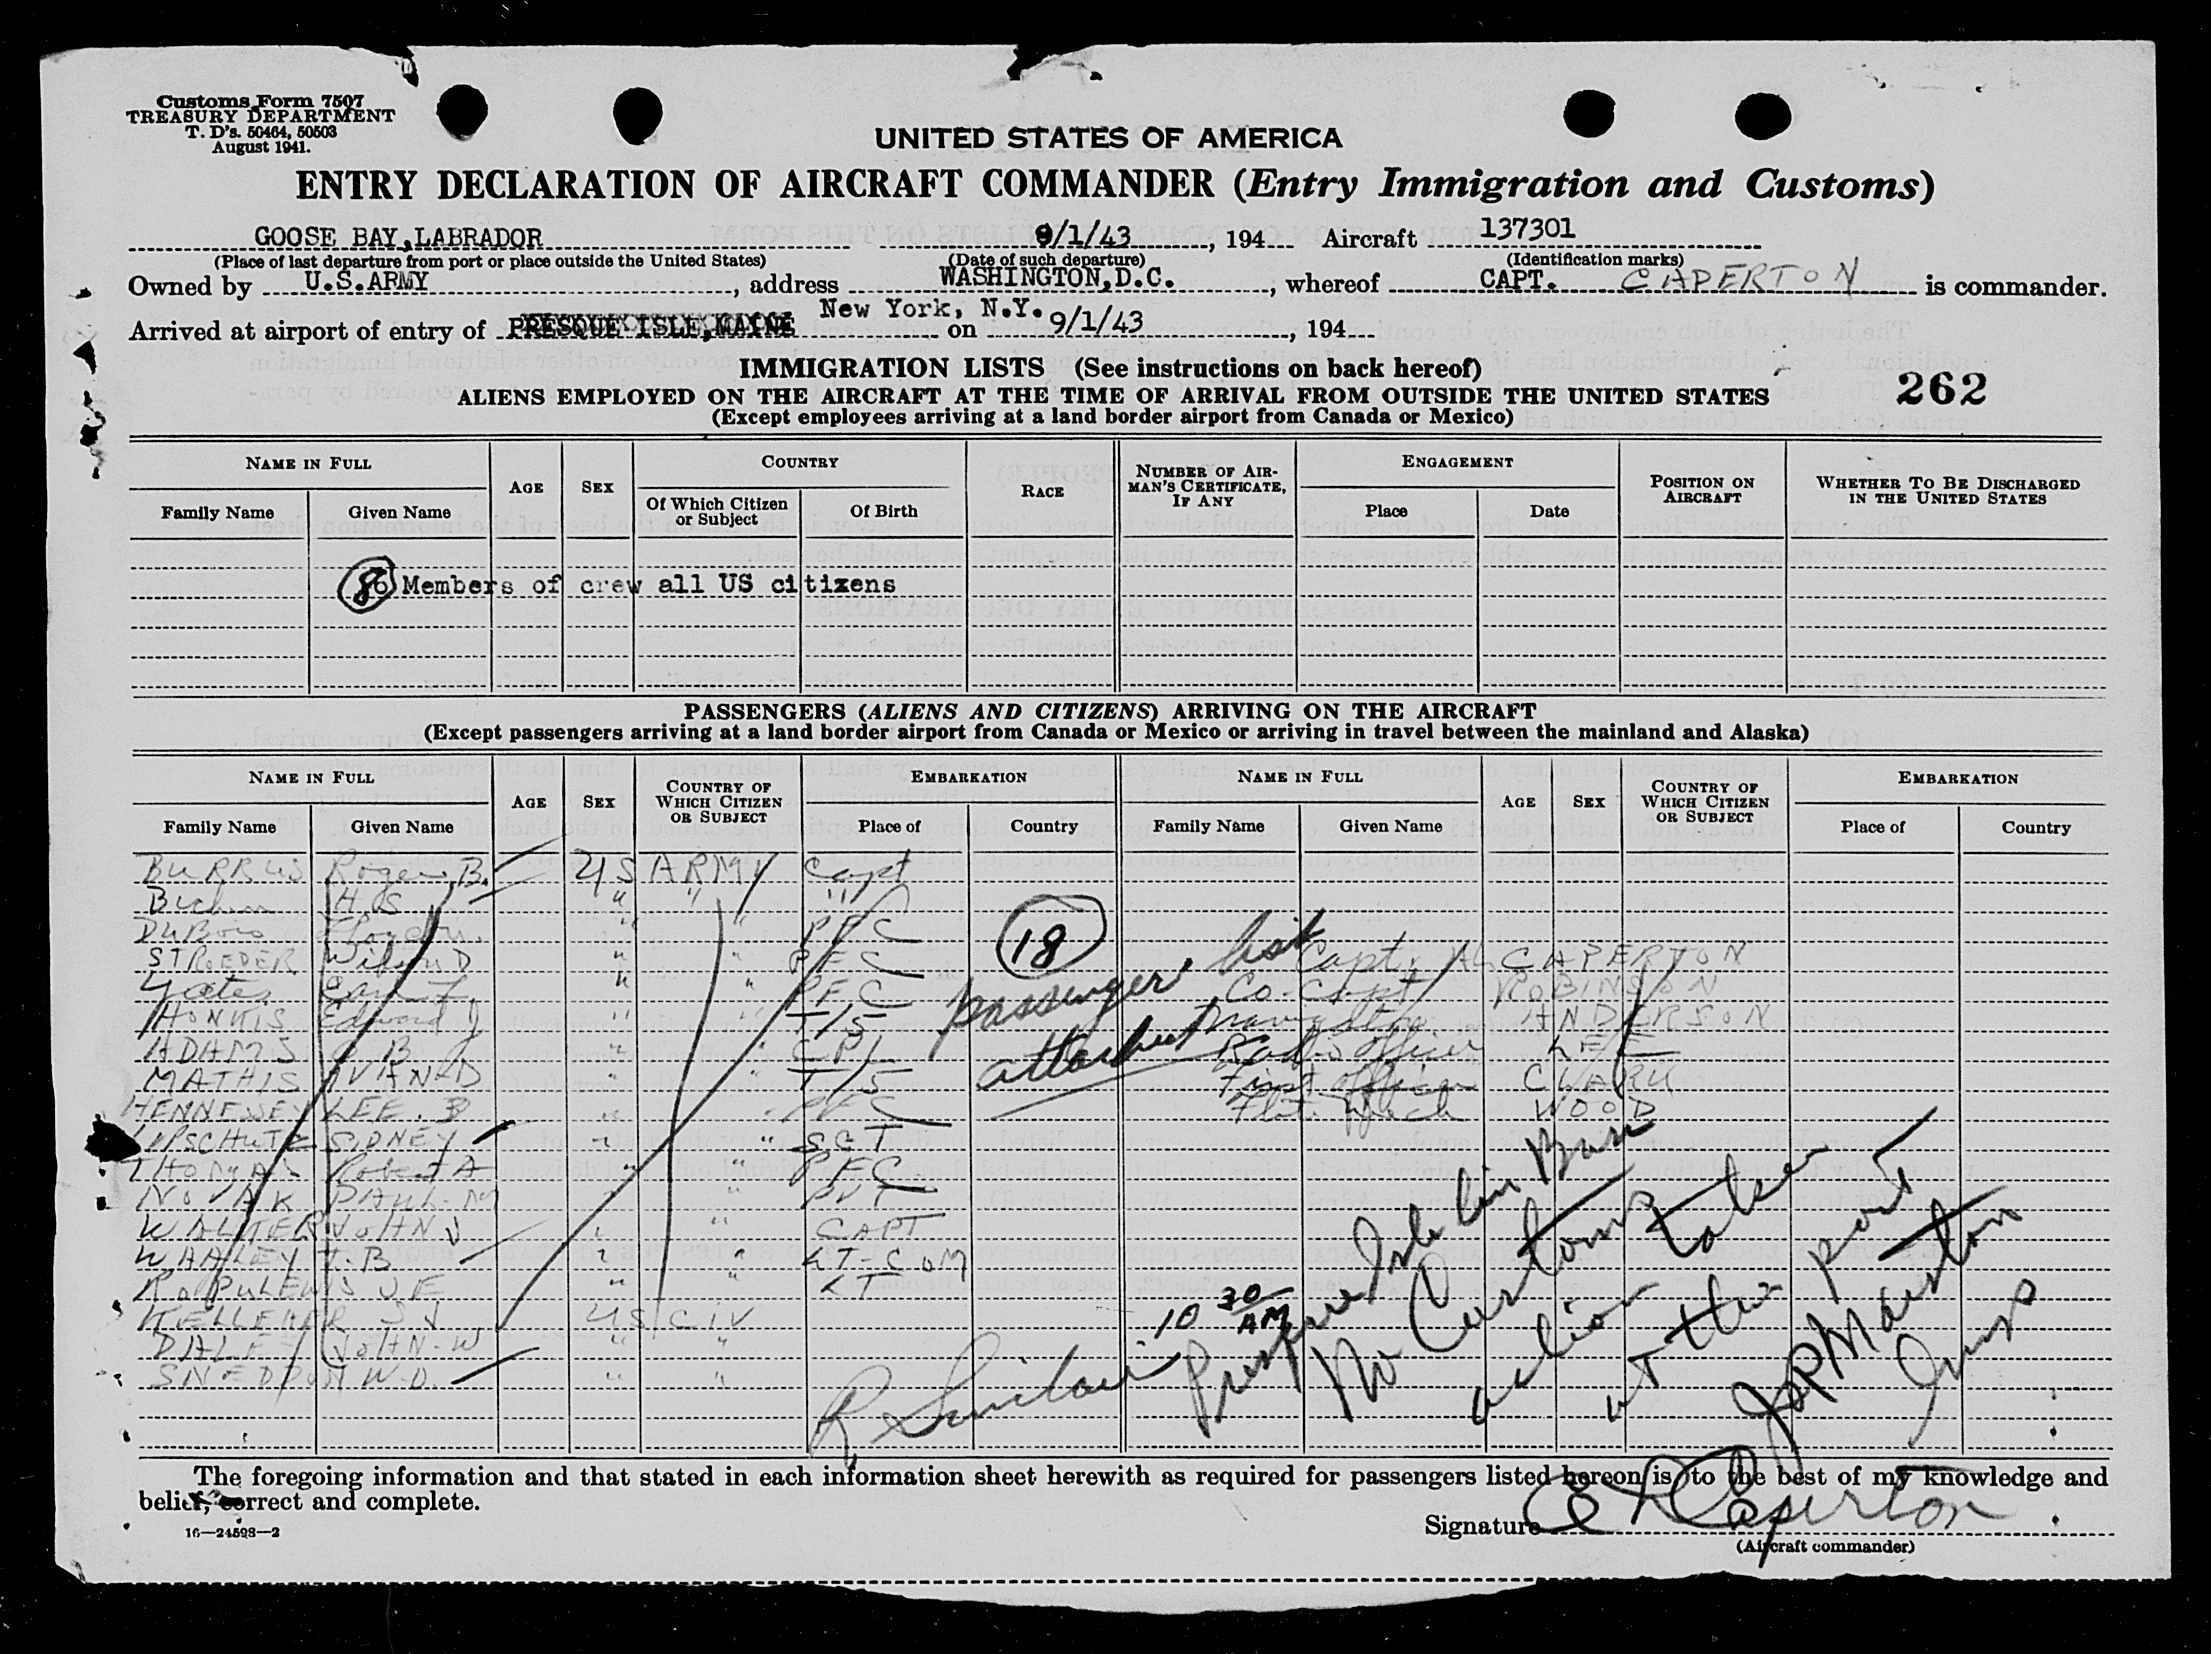 Customs Form 7507
TREASURY DEPARTMENT
T. D's. 50464, 50503
August 1941.
UNITED STATES OF AMERICA
ENTRY DECLARATION OF AIRCRAFT COMMANDER (Entry Immigration and Customs)
GOOSE BAY, LABRADOR 9/1/43, 194 Aircraft 137301
(Place of last departure from port or place outside the United States) (Date of such departure) (Identification marks)
Owned by U.S.ARMY, address WASHINGTON, D.C., whereof CAPT. CAPERTON is commander.
Arrived at airport of entry of PRESQUE ISLE, MAINE New York, N.Y. on 9/1/43, 194
IMMIGRATION LISTS (See instructions on back hereof)
262
ALIENS EMPLOYED ON THE AIRCRAFT AT THE TIME OF ARRIVAL FROM OUTSIDE THE UNITED STATES
(Except employees arriving at a land border airport from Canada or Mexico)
NAME IN FULL AGE SEX COUNTRY RACE NUMBER OF AIRMAN'S CERTIFICATE, IF ANY ENGAGEMENT POSITION ON AIRCRAFT WHETHER TO BE DISCHARGED IN THE UNITED STATES
Family Name Given Name Of Which Citizen or Subject Of Birth Place Date
8 Members of crew all US citizens
PASSENGERS (ALIENS AND CITIZENS) ARRIVING ON THE AIRCRAFT
(Except passengers arriving at a land border airport from Canada or Mexico or arriving in travel between the mainland and Alaska)
NAME IN FULL AGE SEX COUNTRY OF WHICH CITIZEN OR SUBJECT EMBARKATION NAME IN FULL AGE SEX COUNTRY OF WHICH CITIZEN OR SUBJECT EMBARKATION
Family Name Given Name Place of Country Family Name Given Name Place of Country
BURRUS Roger B. US ARMY Capt
H S " " "
DuBois " " PFC
STROEDER D " " PFC
Yates Earl " " PFC
Edward J " " T/5
ADAMS B " " CPL
MATHIS " " T/5
HENNESSEY LEE B " PFC
SIDNEY " " SGT
THOMAS Robert A " " PFC
NOVAK PAUL M " " PVT
WALTER JOHN J " " CAPT
WHALEY B " " LT-COM
J E " " LT
KELLEHER S J US CIV
DALEY JOHN W " "
SNEDDON W D " "
18
passenger list
attached
Capt. CAPERTON
Co-Capt ROBINSON
Navigator ANDERSON
Radio officer LEE
First officer CLARK
WOOD
10 30 AM
R Sinclair
Presque Isle
No Customs
action taken
at this port
The foregoing information and that stated in each information sheet herewith as required for passengers listed hereon is to the best of my knowledge and
belief, correct and complete.
16—24598—2
Signature Caperton
(Aircraft commander)